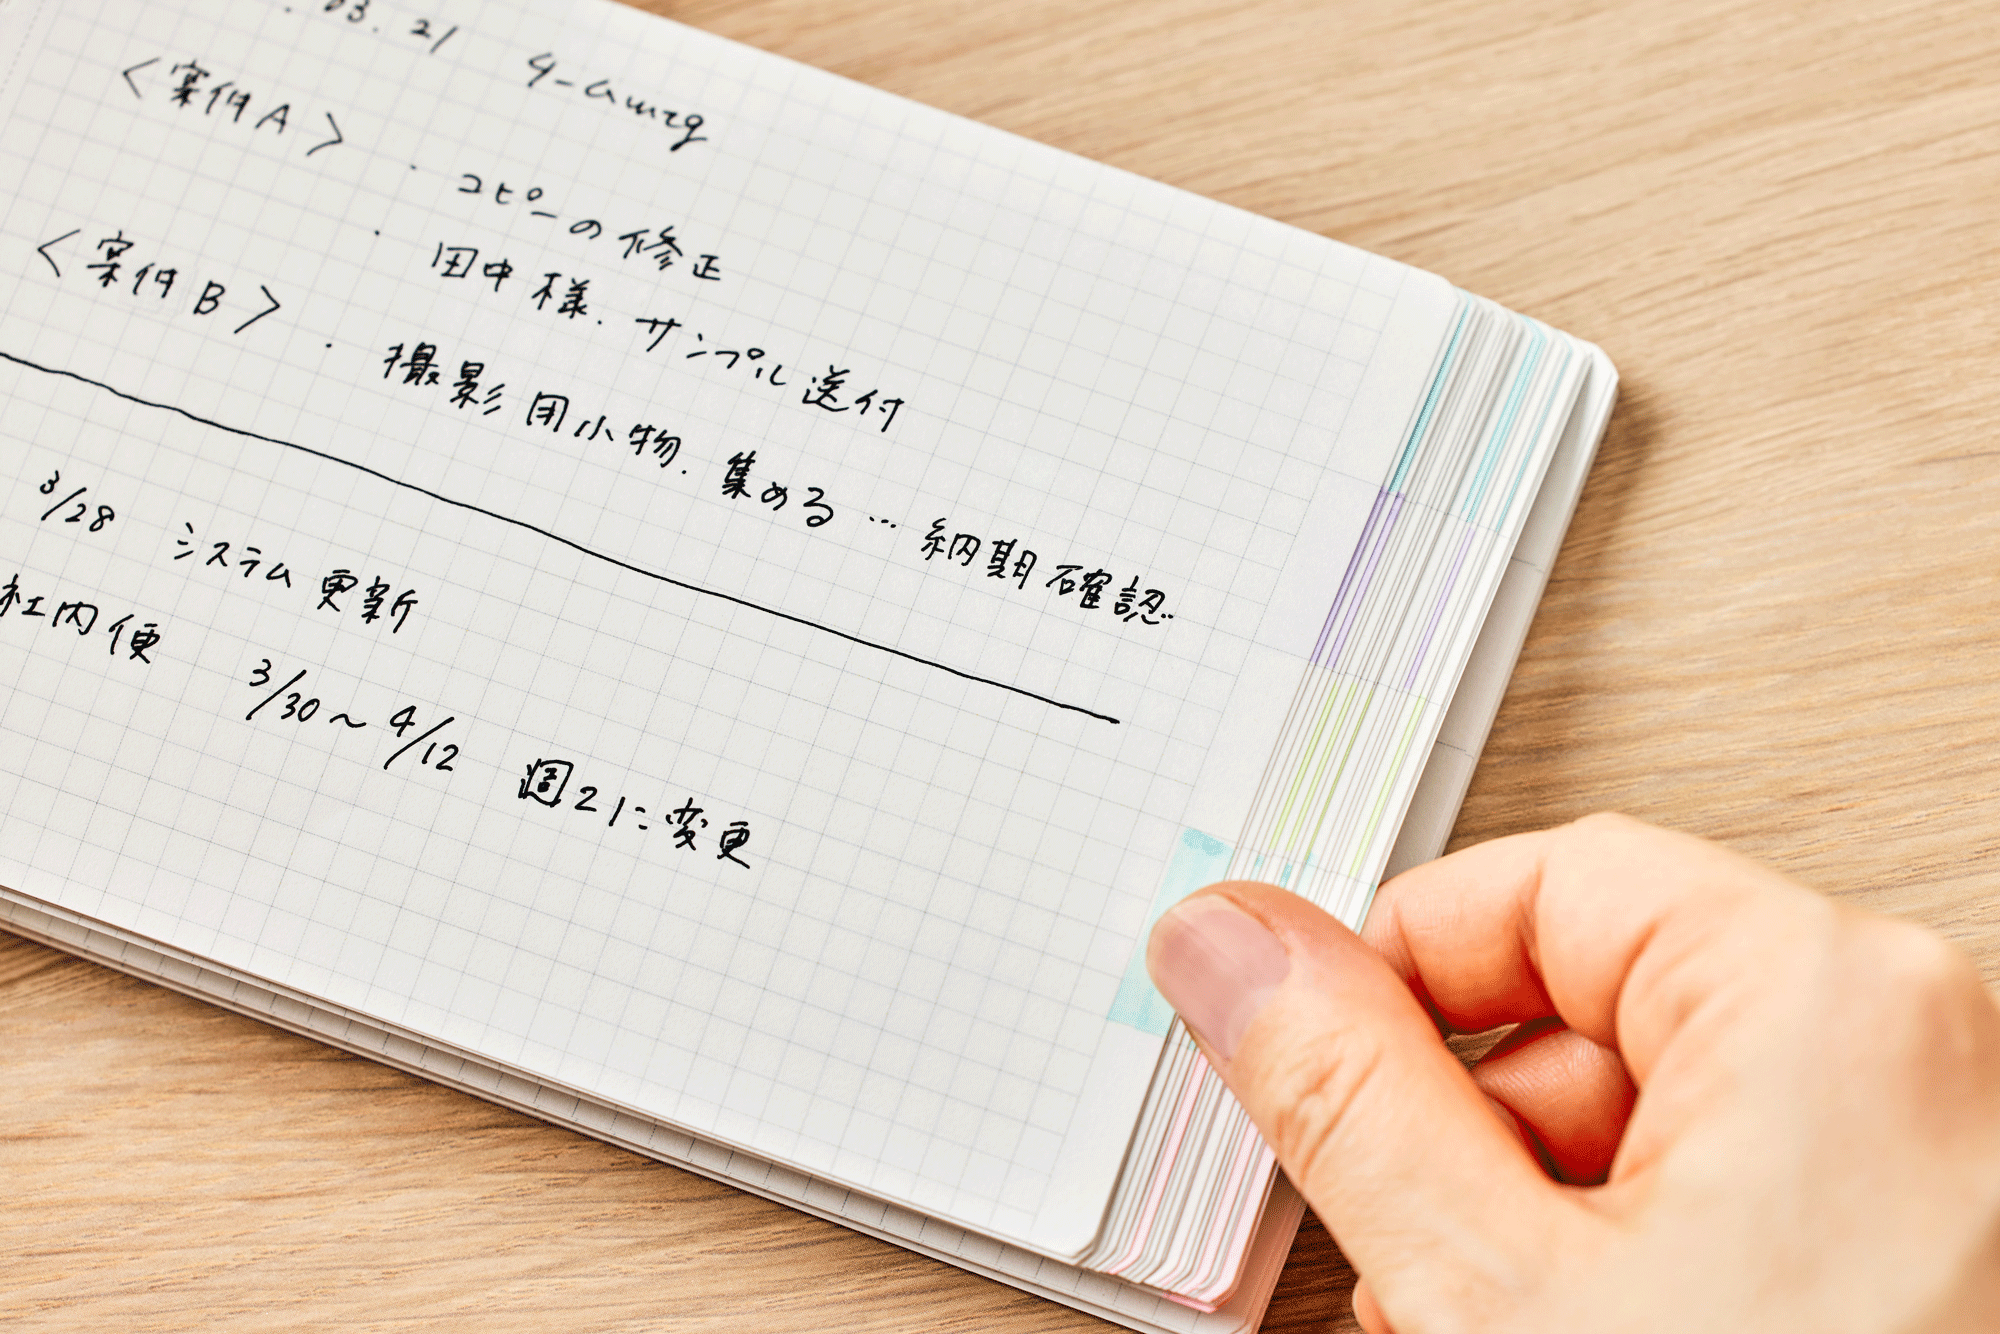 .03.21 チームmtg
<案件A> ・コピーの修正
・田中様.サンプル送付
<案件B> ・撮影用小物.集める…納期確認
3/28 システム更新
社内便 3/30〜4/12 週2に変更